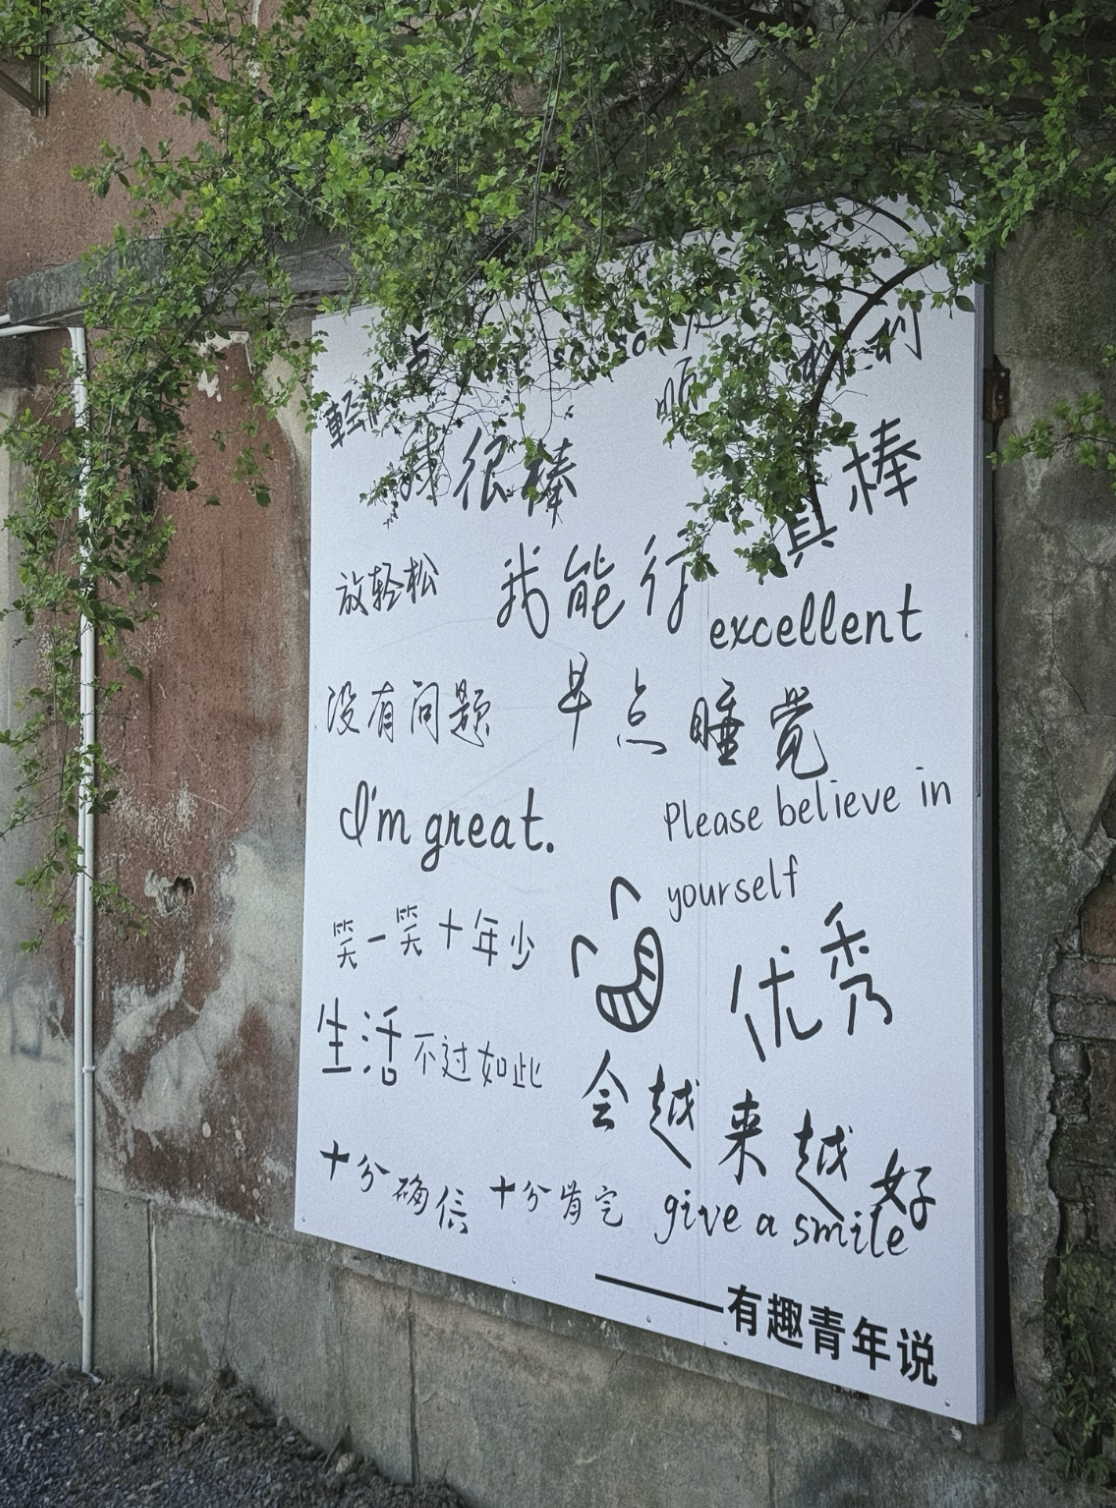 so so
我很棒
真棒
放轻松
我能行
excellent
没有问题
早点睡觉
I'm great.
Please believe in
yourself
笑一笑十年少
优秀
生活不过如此
会越来越好
十分确信
十分肯定
give a smile
——有趣青年说